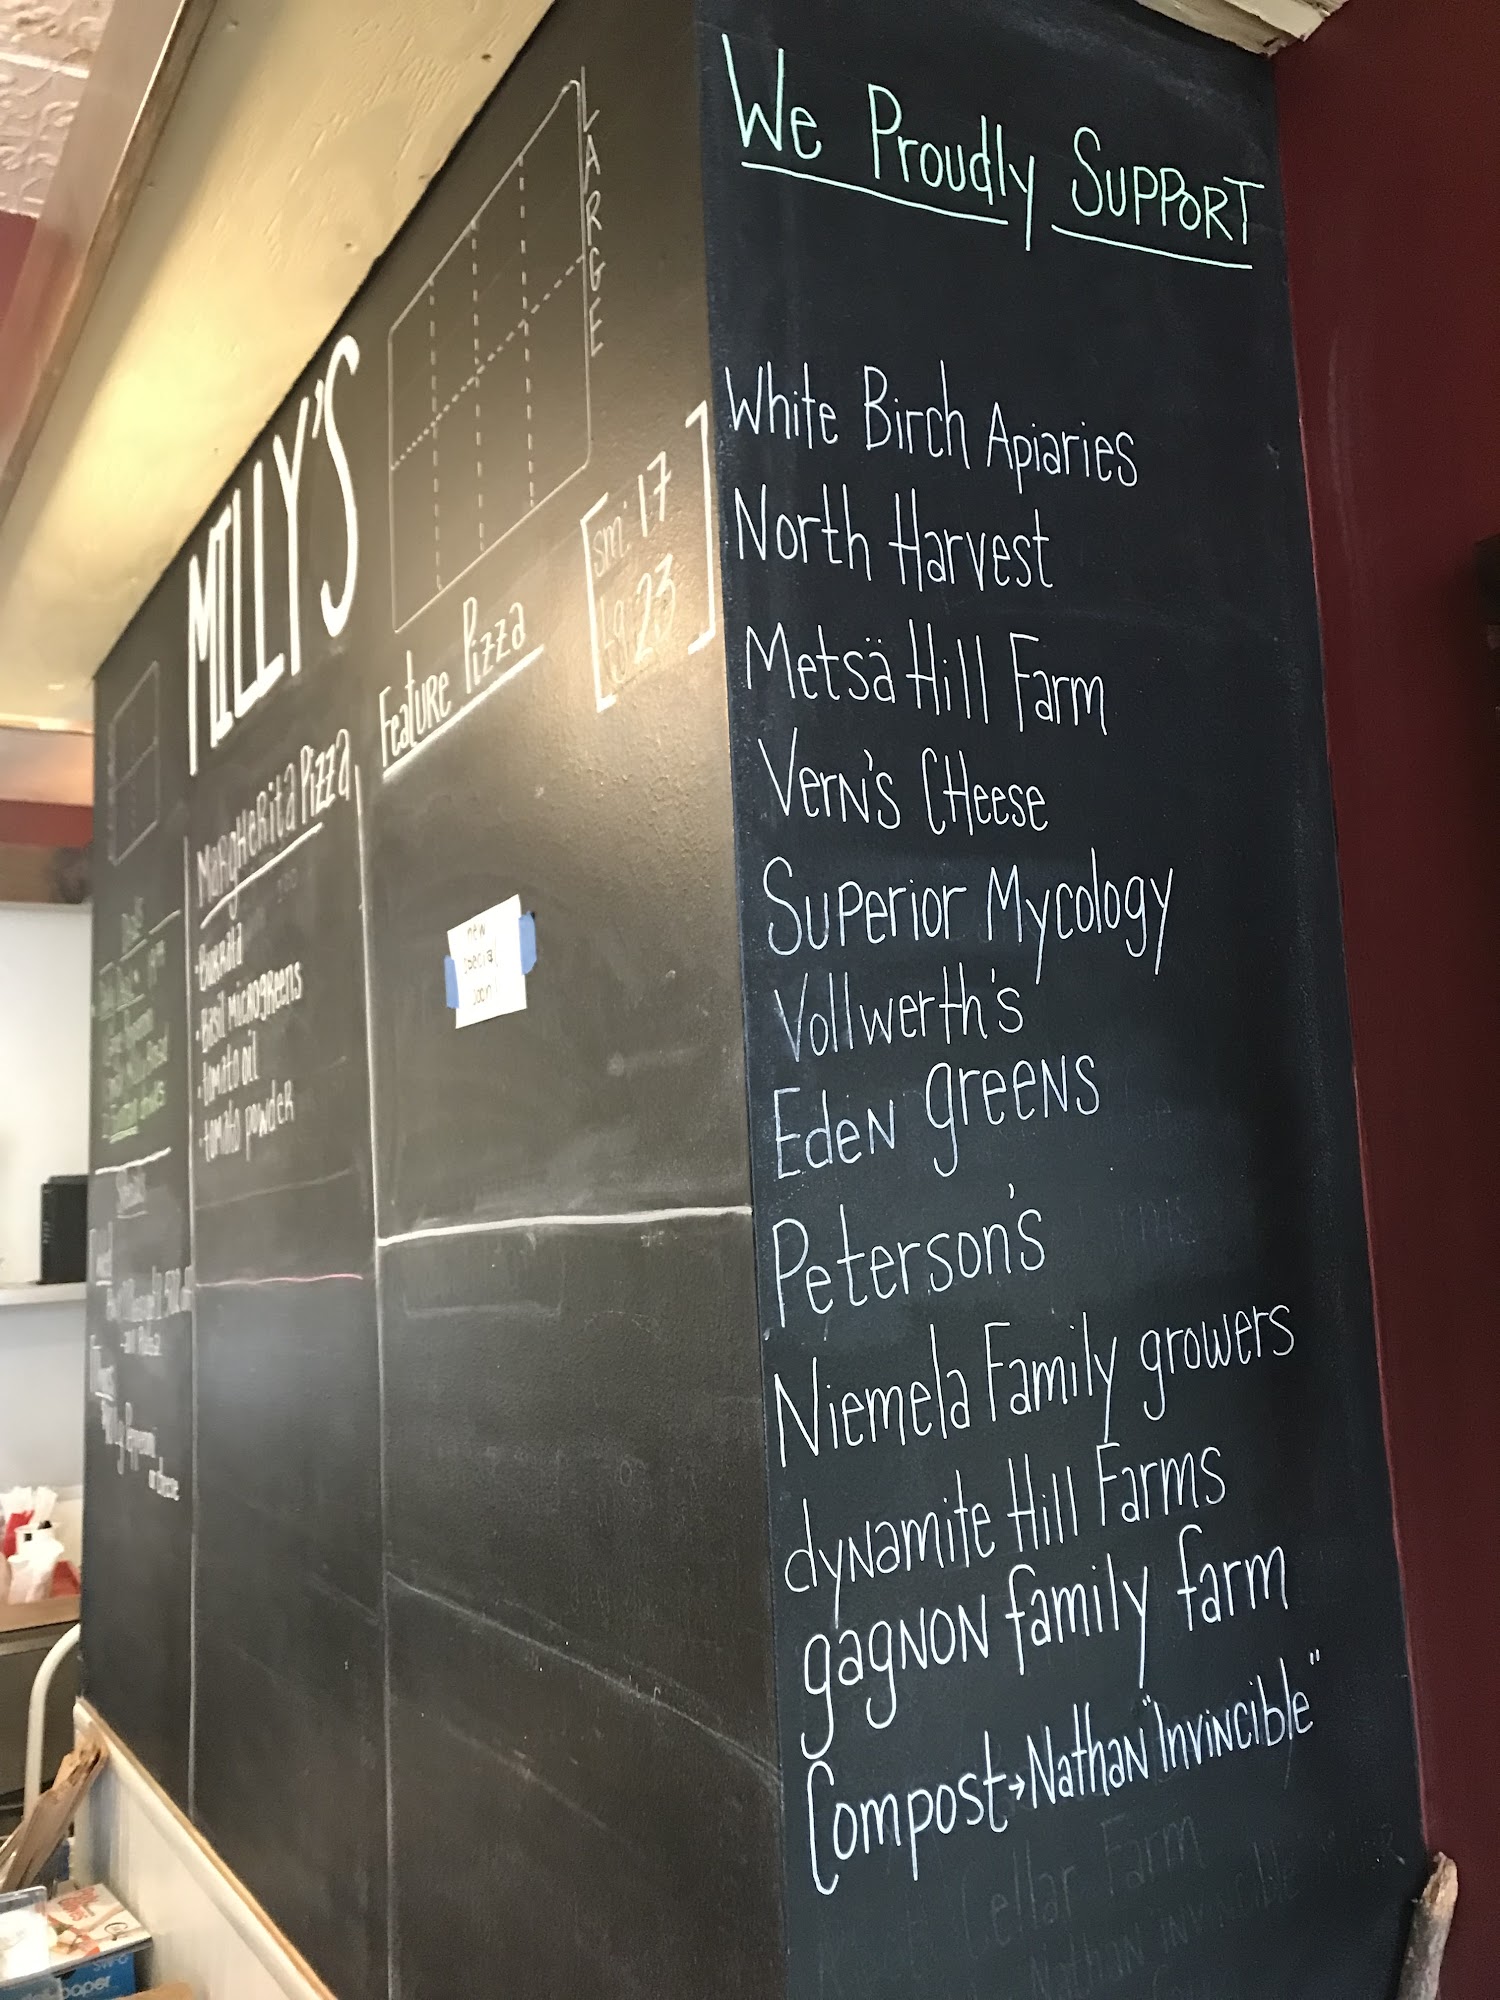 MILLY'S
Margherita Pizza
-Burrata
-Basil microgreens
-tomato oil
-tomato powder
LARGE
Feature Pizza
sm: 17
lg: 23
new
special
soon!
We Proudly Support
White Birch Apiaries
North Harvest
Metsä Hill Farm
Vern's Cheese
Superior Mycology
Vollwerth's
Eden greens
Peterson's
Niemela Family growers
dynamite Hill Farms
gagnon family farm
Compost→Nathan "Invincible"
Cellar Farm
Nathan "Invincible"
or cheese
paper